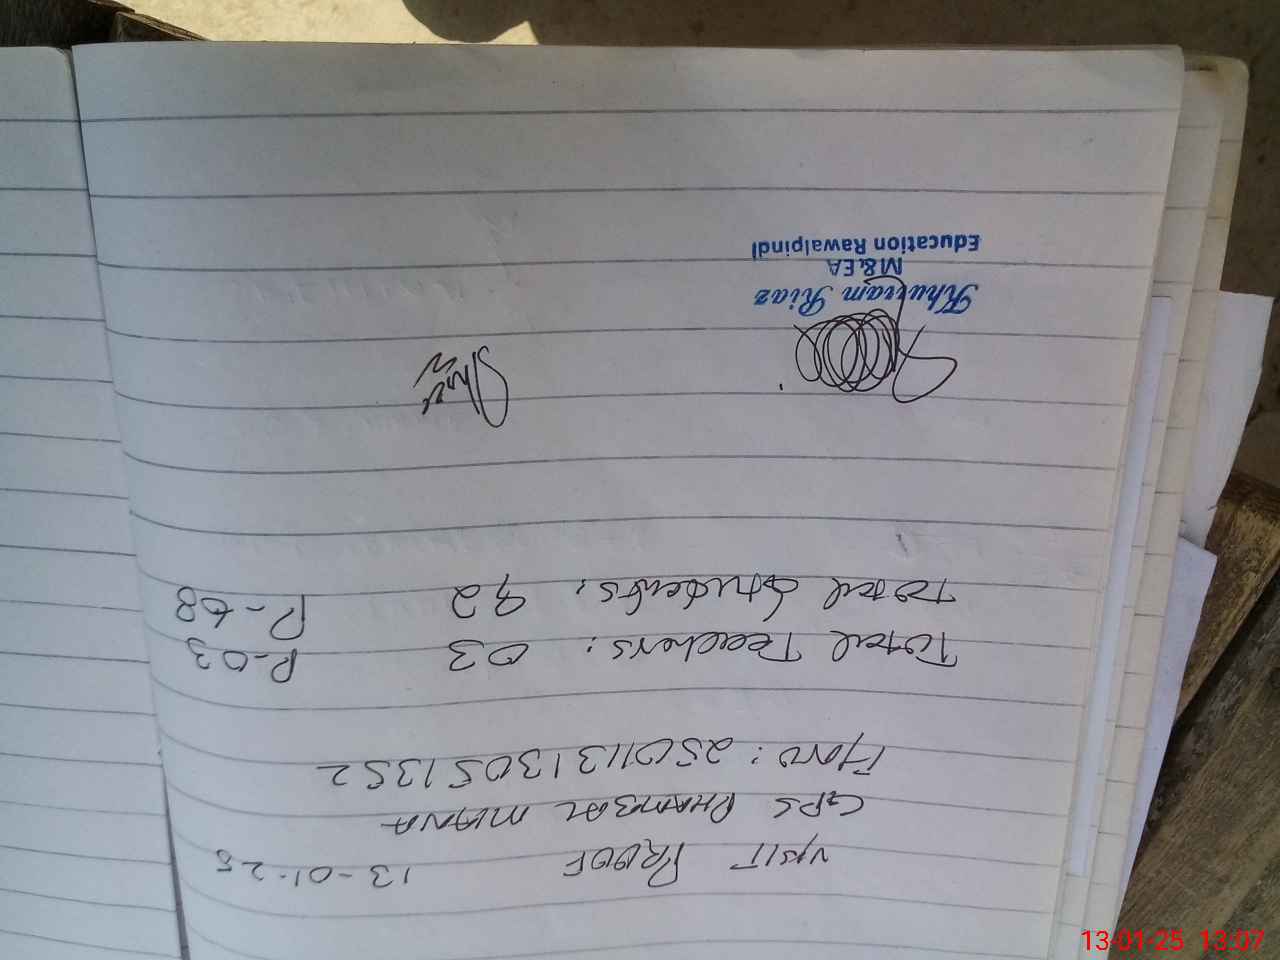 VISIT PROOF 13-01-25
GPS PHAMBAL MIANA
F/No: 25011313051352
Total Teachers: 03 P-03
Total Students: 92 P-68
Khurram Riaz
M&EA
Education Rawalpindi
13-01-25 13:07